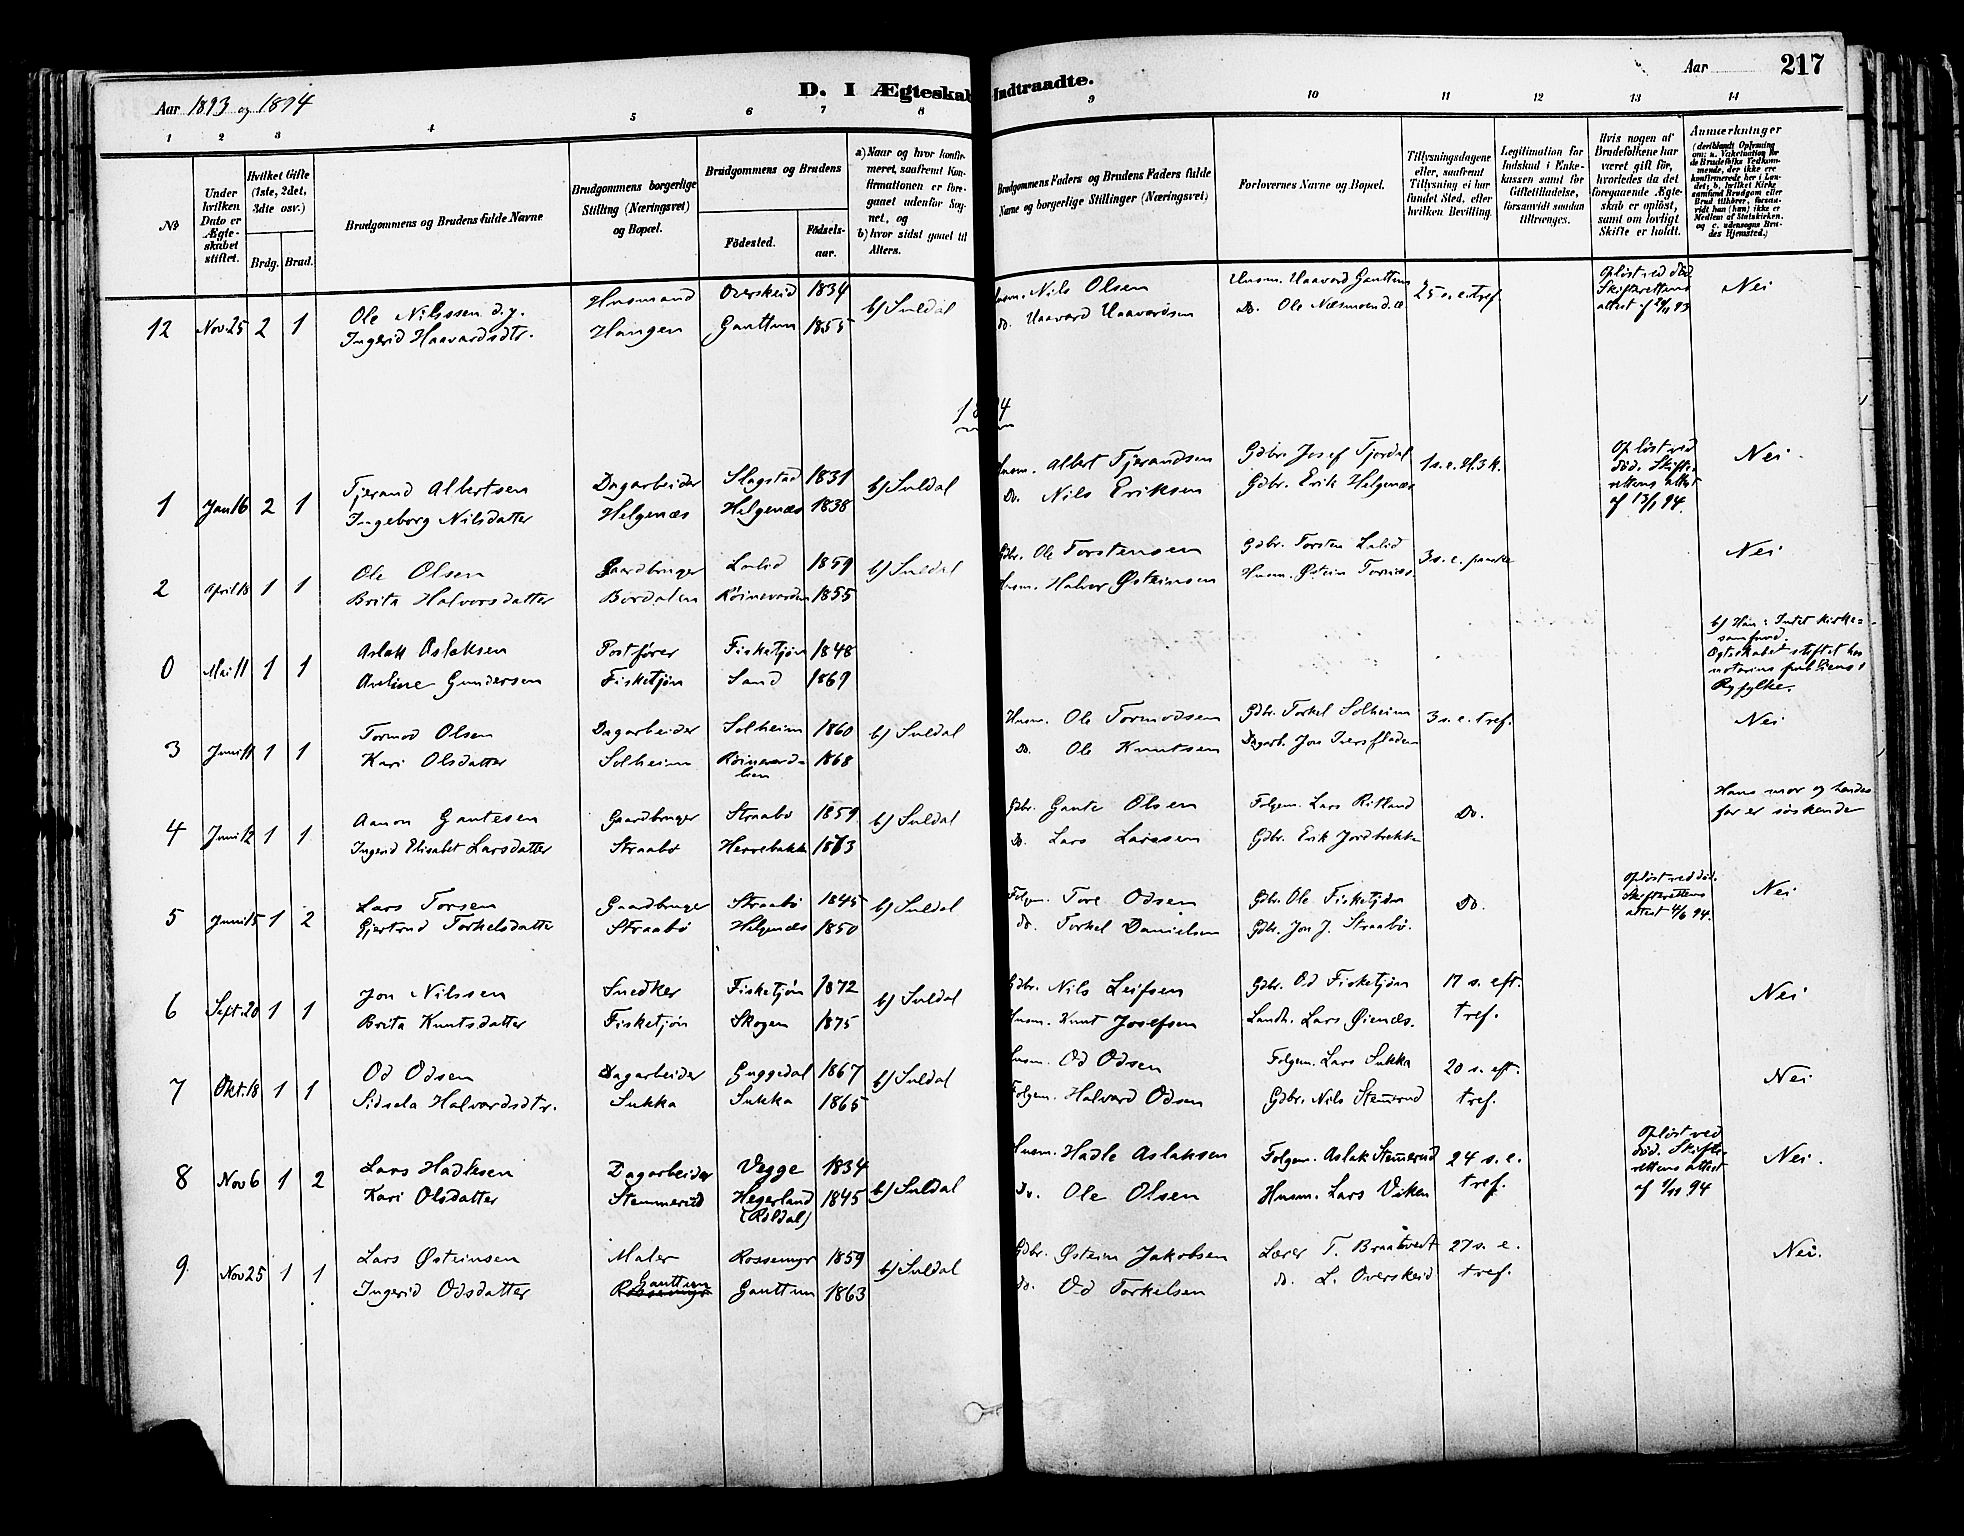 D. I Ægteskab Indtraadte.
Aar 1893 og 1894
Aar
217
1 2 3 4 5 6 7 8 9 10 11 12 13 14
No
Under hvilken Dato er Ægteskabet stiftet.
Hvilket Gifte (1ste, 2det, 3dte osv.)
Brdg. Brud.
Brudgommens og Brudens fulde Navne
Brudgommens borgerlige Stilling (Næringsvei) og Bopæl.
Brudgommens og Brudens
Fødested.
Fødsels-aar.
a) Naar og hvor konfirmeret, saafremt Konfirmationen er foregaaet udenfor Sognet, og
b) hvor sidst gaaet til Alters.
Brudgommens Faders og Brudens Faders fulde Navne og borgerlige Stillinger (Næringsvei)
Forlovernes Navne og Bopæl.
Tillysningsdagene eller, saafremt Tillysning ei har fundet Sted, efter hvilken Bevilling.
Legitimation for Indskud i Enkekassen samt for Giftetilladelse, forsaavidt saadan tiltrænges.
Hvis nogen af Brudefolkene har været gift før, hvorledes da det foregaaende Ægteskab er opløst, samt om lovligt Skifte er holdt.
Anmærkninger
(deriblandt Oplysning om: a. Vakcination for de Brudefolks Vedkommende, der ikke ere konfirmerede her i Landet; b. hvilket Kirkesamfund Brudgom eller Brud tilhører, forsaavidt han (hun) ikke er Medlem af Statskirken, og c. udensogns Brudes Hjemsted.)
12 Nov. 25 2 1 Ole Nilssen d.y. Husmand Overskeid 1834 b) Suldal Husm. Nils Olsen Husm. Haavard Gauttun 25 s. e. tref. Opløst ved død. Skifterettens attest Nei
Ingerid Haavardsdtr. Haugen Gauttun 1855 do. Haavard Haavardsen Do. Ole Næsmoen d.æ.
1894
1 Jan 16 2 1 Tjerand Albertsen Dagarbeider Slagstad 1831 b) Suldal Husm. Albert Tjerandsen Gdbr. Josef Tjordal 1 s. e. H. 3 K. Opløst ved død. Skifterettens attest af 13/1 94. Nei.
Ingeborg Nilsdatter Helgenæs Helgenæs 1838 Do. Nils Eriksen Gdbr. Erik Helgenæs
2 April 18 1 1 Ole Olsen Gaardbruger Lalid 1859 b) Suldal Gdbr. Ole Torstensen Gdbr. Torsten Lalid 3 s. e. paaske Nei
Brita Halvorsdatter Bordalen Røinevarden 1855 Husm. Halvor Østeinsen Husm. Østein
0 Mai 11 1 1 Aslak Aslaksen Postfører Fisketjøn 1848 b) Han: Intet kirkesamfund. Ægteskabet stiftet hos notarius publicus i Ryfylke.
Gundersen Fisketjøn Sand 1869
3 Juni 11 1 1 Tormod Olsen Dagarbeider Solheim 1860 b) Suldal Husm. Ole Tormodsen Gdbr. Torkel Solheim 3 s. e. tref. Nei
Kari Olsdatter Solheim 1868 Do. Ole Knutsen Dagarb. Jon
4 Juni 12 1 1 Aamon Gautesen Gaardbruger Straabø 1859 b) Suldal Gdbr. Gaute Olsen Folgem. Lars Ritland Do. Hans mor og hendes far er søskende
Ingerid Elisabet Larsdatter Straabø Herrebakk 1873 Do. Lars Larssen Gdbr. Erik Jordbrekke
5 Juni 15 1 2 Lars Torsen Gaardbruger Straabø 1845 b) Suldal Folgem. Tore Odsen Gdbr. Ole Fisketjøn Do. Opløst ved død. Skifterettens attest 4/6 94. Nei
Gjertrud Torkelsdatter Straabø Helgenæs 1850 do. Torkel Danielsen Gdbr. Jon J. Straabø.
6 Sept. 20 1 1 Jon Nilssen Snedker Fisketjøn 1872 b) Suldal Gdbr. Nils Leifsen Gdbr. Od Fisketjøn 17 s. eft. tref. Nei
Brita Knutsdatter Fisketjøn Skogen 1875 Husm. Knut Josefsen Landh. Lars Øienæs.
7 Okt. 18 1 1 Od Odsen Dagarbeider Guggedal 1867 b) Suldal Husm. Od Odsen Folgem. Lars Sukka 20 s. eft. tref. Nei
Sidsela Halvardsdtr. Sukka Sukka 1865 Folgem. Halvard Odsen Gdbr. Nils Stemmerud
8 Nov 6 1 2 Lars Hadlesen Dagarbeider Vegge 1834 b) Suldal Husm. Hadle Aslaksen Folgem. Aslak Stemmerud 24 s. e. tref. Opløst ved død. Skifterettens attest af 1/11 94 Nei.
Kari Olsdatter Stemmerud Hegerland (Röldal) 1845 Do. Ole Olsen Husm. Lars Viken
9 Nov 25 1 1 Lars Østeinsen Maler Rossemyr 1859 b) Suldal Gdbr. Østein Jakobsen Lærer T. Braatveit 27 s. e. tref. Nei.
Ingerid Odsdatter Gauttun Rossemyr Gauttun 1863 do. Od Torkelsen do. L. Overskeid